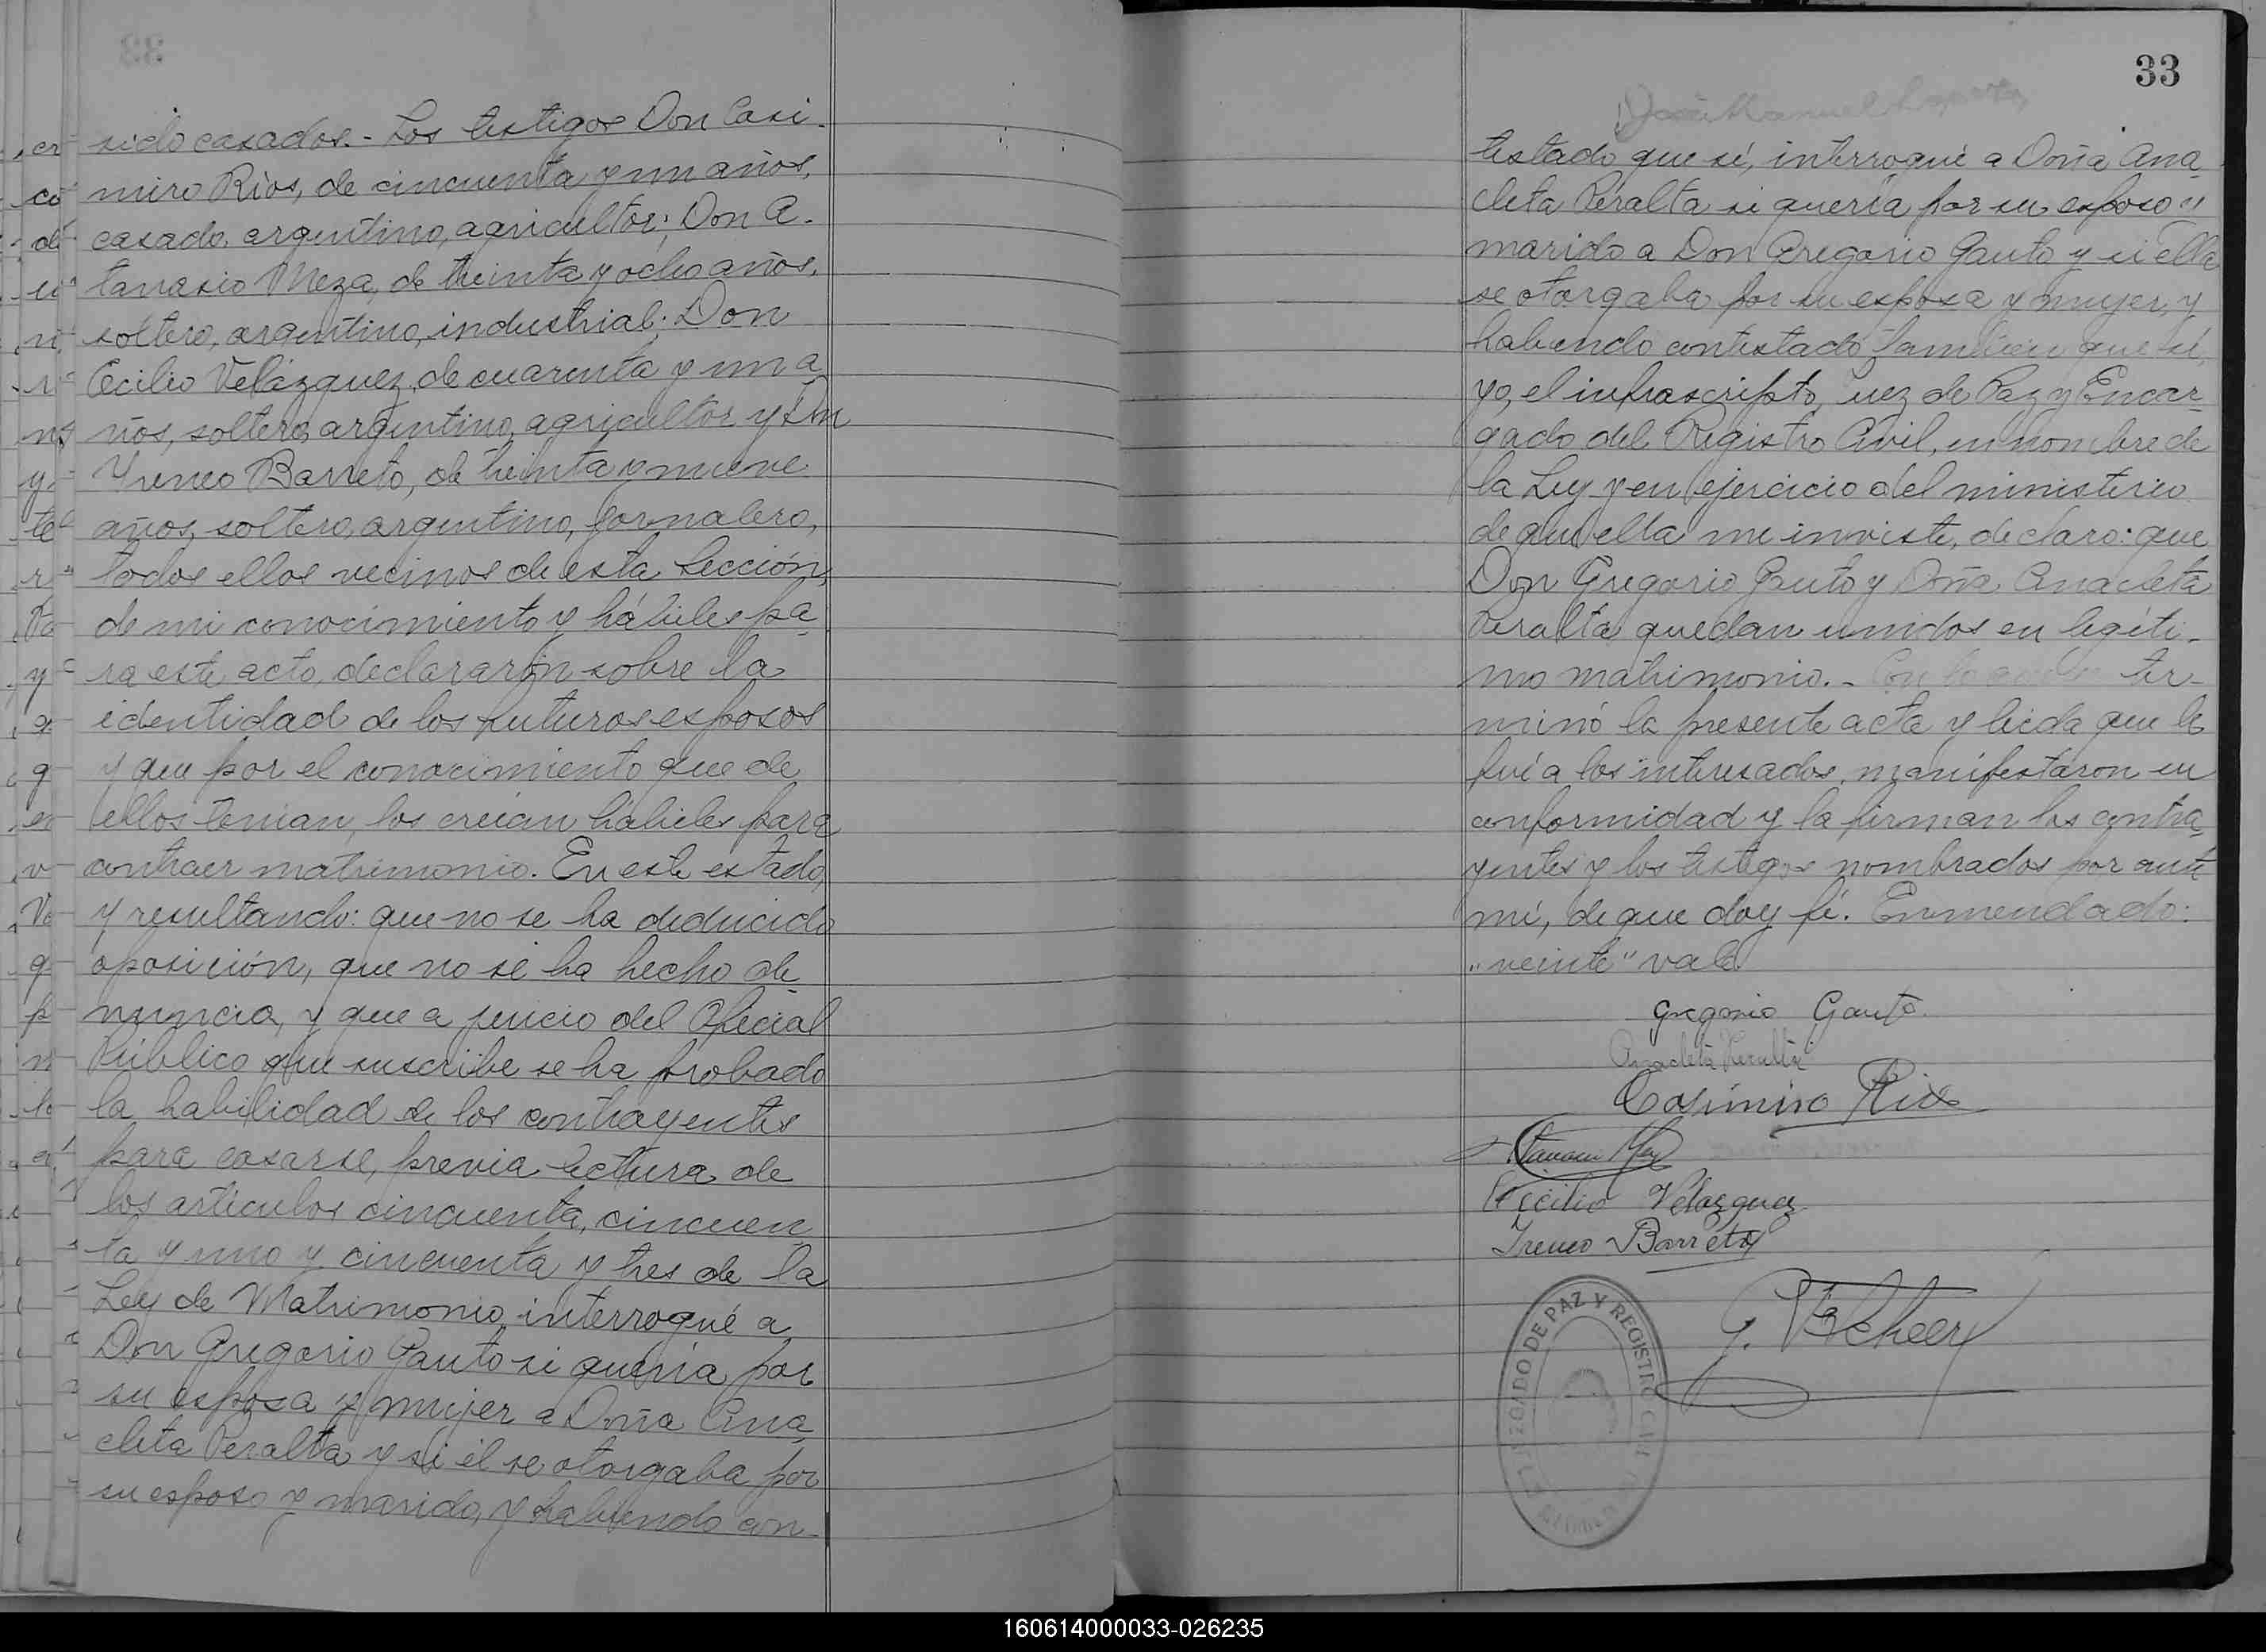 sido casados.- Los testigos Don Casi-
miro Ríos, de cincuenta y un años,
casado, argentino, agricultor; Don A-
tanasio Meza, de treinta y ocho años,
soltero, argentino, industrial; Don
Cecilio Velázquez, de cuarenta y un a-
ños, soltero, argentino, agricultor y Don
Yreneo Barreto, de treinta y nueve
años, soltero, argentino, jornalero,
todos ellos vecinos de esta Sección,
de mi conocimiento y hábiles pa-
ra este acto, declararon sobre la
identidad de los futuros esposos
y que por el conocimiento que de
ellos tenían, los creían hábiles para
contraer matrimonio. En este estado,
y resultando: que no se ha deducido
oposición, que no se ha hecho de-
nuncia, y que a juicio del Oficial
Público que suscribe se ha probado
la habilidad de los contrayentes
para casarse, previa lectura de
los artículos cincuenta, cincuen-
ta y uno y cincuenta y tres de la
Ley de Matrimonio, interrogué a
Don Gregorio Gauto si quería por
su esposa y mujer a Doña Ana-
cleta Peralta y si él se otorgaba por
su esposo y marido, y habiendo con-
33
José Manuel
testado que sí, interrogué a Doña Ana-
cleta Peralta si quería por su esposo y
marido a Don Gregorio Gauto y si ella
se otorgaba por su esposa y mujer, y
habiendo contestado también que sí,
yo, el infrascripto, Juez de Paz y Encar-
gado del Registro Civil, en nombre de
la Ley y en ejercicio del ministerio
de que ella me inviste, declaro: que
Don Gregorio Gauto y Doña Anacleta
Peralta quedan unidos en legíti-
mo matrimonio.- Con lo que ter-
minó la presente acta y leída que le
fué a los interesados, manifestaron su
conformidad y la firman los contra-
yentes y los testigos nombrados por ante
mí, de que doy fé. Enmendado:
"veinte" vale.
Gregorio Gauto
Anacleta Peralta
Casimiro Rios
Cecilio Velazquez
Ireneo Barreto
JUZGADO DE PAZ Y REGISTRO CIVIL
160614000033-026235